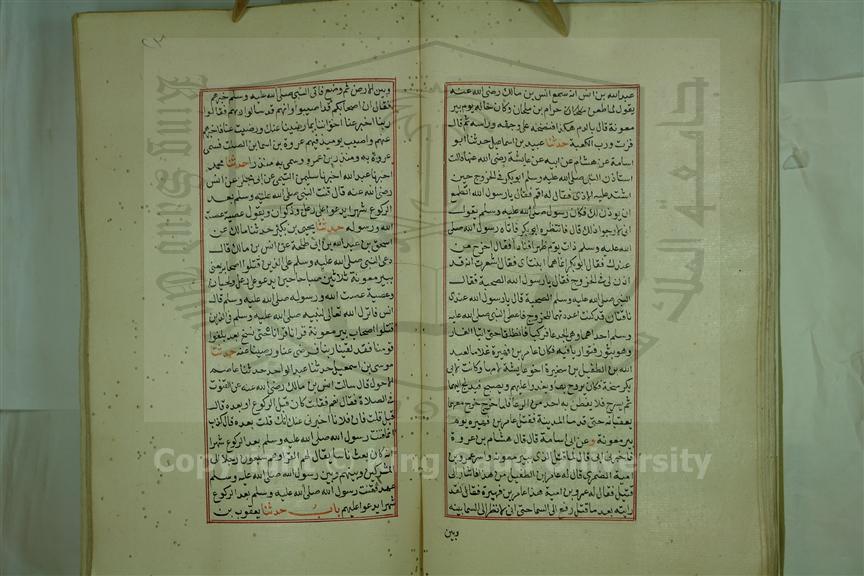 عبد الله بن انس انه سمع انس بن مالك رضى الله عنه
يقول لما طعن حرام بن ملحان وكان خاله يوم بير
معونة قال بالدم هكذا فنضحه على وجهه وراسه ثم قال
فزت ورب الكعبة حدثنا عبيد بن اسماعيل حدثنا ابو
اسامة عن هشام عن ابيه عن عايشة رضى الله عنها قالت
استاذن النبى صلى الله عليه وسلم ابو بكر فى الخروج حين
اشتد عليه الاذى فقال له اقم فقال يا رسول الله اتطمع
ان يوذن لك فكان رسول الله صلى الله عليه وسلم يقول
انى لارجو ذلك قال فانتظره ابو بكر فاتاه رسول الله صلى
الله عليه وسلم ذات يوم ظهرا فناداه فقال اخرج من
عندك فقال ابو بكر انما هما ابنتاى فقال اشعرت انه قد
اذن لى فى الخروج فقال يا رسول الله الصحبة فقال
النبى صلى الله عليه وسلم الصحبة قال يا رسول الله عندى
ناقتان قد كنت اعددتهما للخروج فاعطى النبى صلى الله عليه
وسلم احداهما وهى الجدعا فركبا فانطلقا حتى اتيا الغار
وهو بثور فتواريا فيه فكان عامر بن فهيرة غلاما لعبد
الله بن الطفيل بن سخبرة اخو عايشة لامها وكانت لابى
بكر منحة فكان يروح بها ويغدوا عليهم ويصبح فيدلج اليهما
ثم يسرح فلا يفطن به احد من الرعا فلما خرج خرج معهما
يعقبانه حتى قدما المدينة فقتل عامر بن فهيرة يوم
بير معونة وعن ابى اسامة قال قال هشام بن عروة
فاخبرنى ابى قال لما قتل الذين ببير معونة واسر عمرو بن
امية الضمرى قال له عامر بن الطفيل من هذا فاشار الى
قتيل فقال له عمرو بن امية هذا عامر بن فهيرة فقال لقد
رايته بعد ما قتل رفع الى السما حتى انى لانظر الى السما بينه
وبين
وبين الارض ثم وضع فاتى النبى صلى الله عليه وسلم خبرهم
فنعاهم فقال ان اصحابكم قد اصيبوا وانهم قد سالوا ربهم فقالوا
ربنا اخبر عنا اخواننا بما رضينا عنك ورضيت عنا فاخبرهم
عنهم واصيب يوميذ فيهم عروة بن اسما بن الصلت فسمى
عروة به ومنذر بن عمرو وسمى به منذرا حدثنا محمد
اخبرنا عبد الله اخبرنا سليمن التيمى عن ابى مجلز عن انس
رضى الله عنه قال قنت النبى صلى الله عليه وسلم بعد
الركوع شهرا يدعوا على رعل وذكوان ويقول عصية عصت
الله ورسوله حدثنا يحيى بن بكير حدثنا مالك عن
اسحق بن عبد الله بن ابى طلحة عن انس بن مالك قال
دعى النبى صلى الله عليه وسلم على الذين قتلوا اصحابه
ببير معونة ثلاثين صباحا حين يدعو على رعل ولحيان
وعصية عصت الله ورسوله صلى الله عليه وسلم قال
انس فانزل الله تعالى لنبيه صلى الله عليه وسلم فى الذين
قتلوا اصحاب بير معونة قرانا قراناه حتى نسخ بعد بلغوا
قومنا فقد لقينا ربنا فرضى عنا ورضينا عنه حدثنا
موسى بن اسمعيل حدثنا عبد الواحد حدثنا عاصم
الاحول قال سالت انس بن مالك رضى الله عنه عن القنوت
فى الصلاة فقال نعم فقلت كان قبل الركوع او بعده قال
قبل قلت فان فلانا اخبرنى عنك انك قلت بعده قال كذب
انما قنت رسول الله صلى الله عليه وسلم بعد الركوع شهرا
انه كان بعث ناسا يقال لهم القرا وهم سبعون رجلا الى
المشركين وبينهم وبين رسول الله صلى الله عليه وسلم
عهد فقنت رسول الله صلى الله عليه وسلم بعد الركوع
شهرا يدعوا عليهم باب حدثنا يعقوب بن
جامعة الملك
King Saud University
Copyright © King Saud University